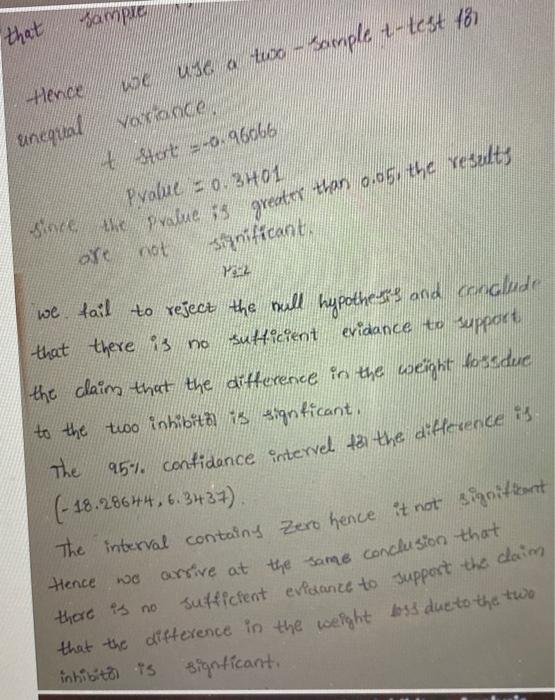 that sample
Hence we use a two-sample t-test for
unequal variance.
t Start = -0.96066
Pvalue = 0.3401
since the Pvalue is greater than 0.05, the results
are not significant.
we fail to reject the null hypothesis and conclude
that there is no sufficient evidance to support
the claim that the difference in the weight lossdue
to the two inhibitor is signficant.
The 95% confidance intervel for the difference is
(-18.28644, 6.3437).
The interval contains zero hence it not significant
Hence we arrive at the same conclusion that
there is no sufficient evidance to support the claim
that the difference in the weight loss due to the two
inhibitor is signficant.